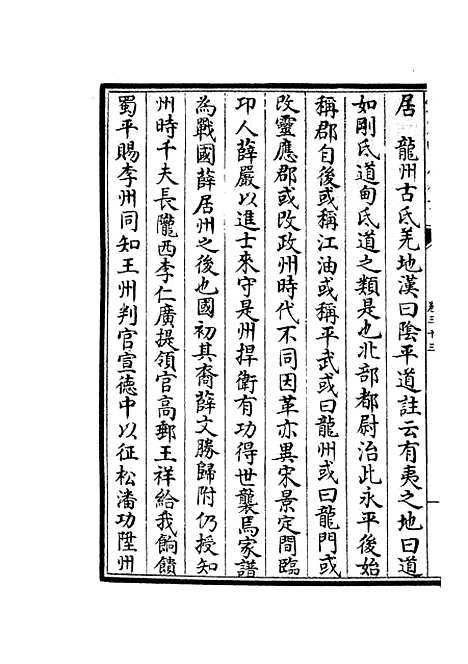 居　龍州古氐羌地漢曰陰平道註云有夷之地曰道
如剛氐道甸氐道之類是也北部都尉治此永平後始
稱郡自後或稱江油或稱平武或曰龍州或曰龍門或
改靈應郡或改政州時代不同因革亦異宋景定間臨
卭人薛嚴以進士來守是州捍衛有功得世襲焉家譜
為戰國薛居州之後也國初其裔薛文勝歸附仍授知
州時千夫長隴西李仁廣提領官高郵王祥給我餉饋
蜀平賜李州同知王州判官宣德中以征松潘功陞州
卷三十三